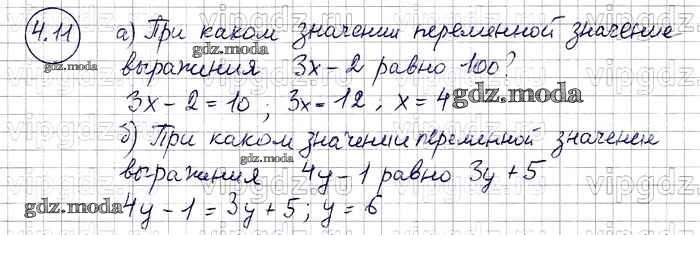 4.11 а) При каком значении переменной значение
выражения 3x - 2 равно 100?
3x - 2 = 10 ; 3x = 12 , x = 4
б) При каком значении переменной значение
выражения 4y - 1 равно 3y + 5
4y - 1 = 3y + 5 ; y = 6
gdz.moda
gdz.moda
gdz.moda
gdz.moda
gdz.moda